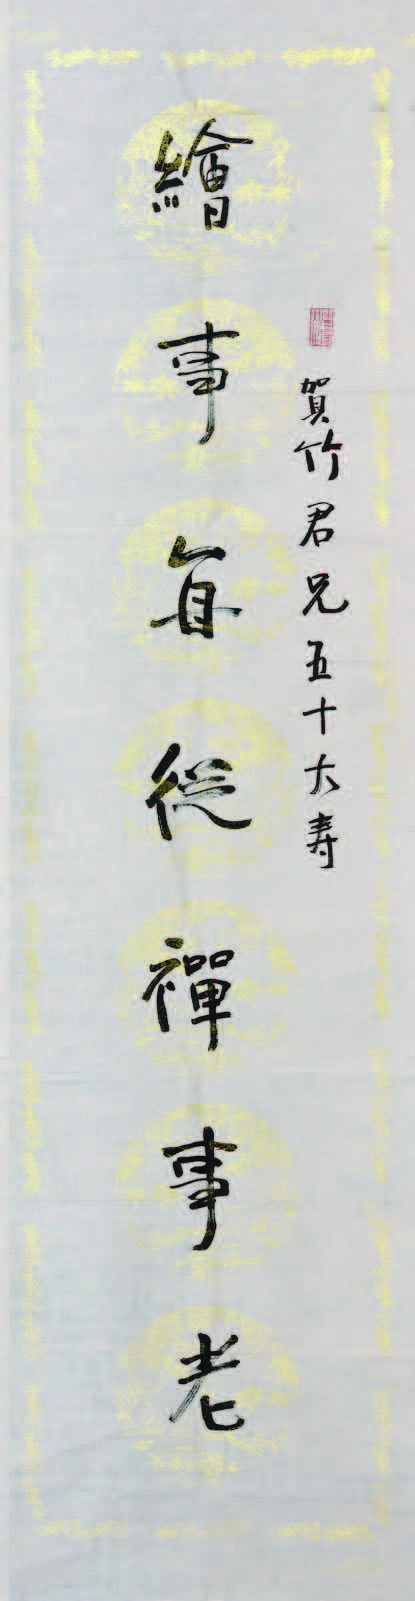 賀竹君兄五十大寿
繪事每從禪事老